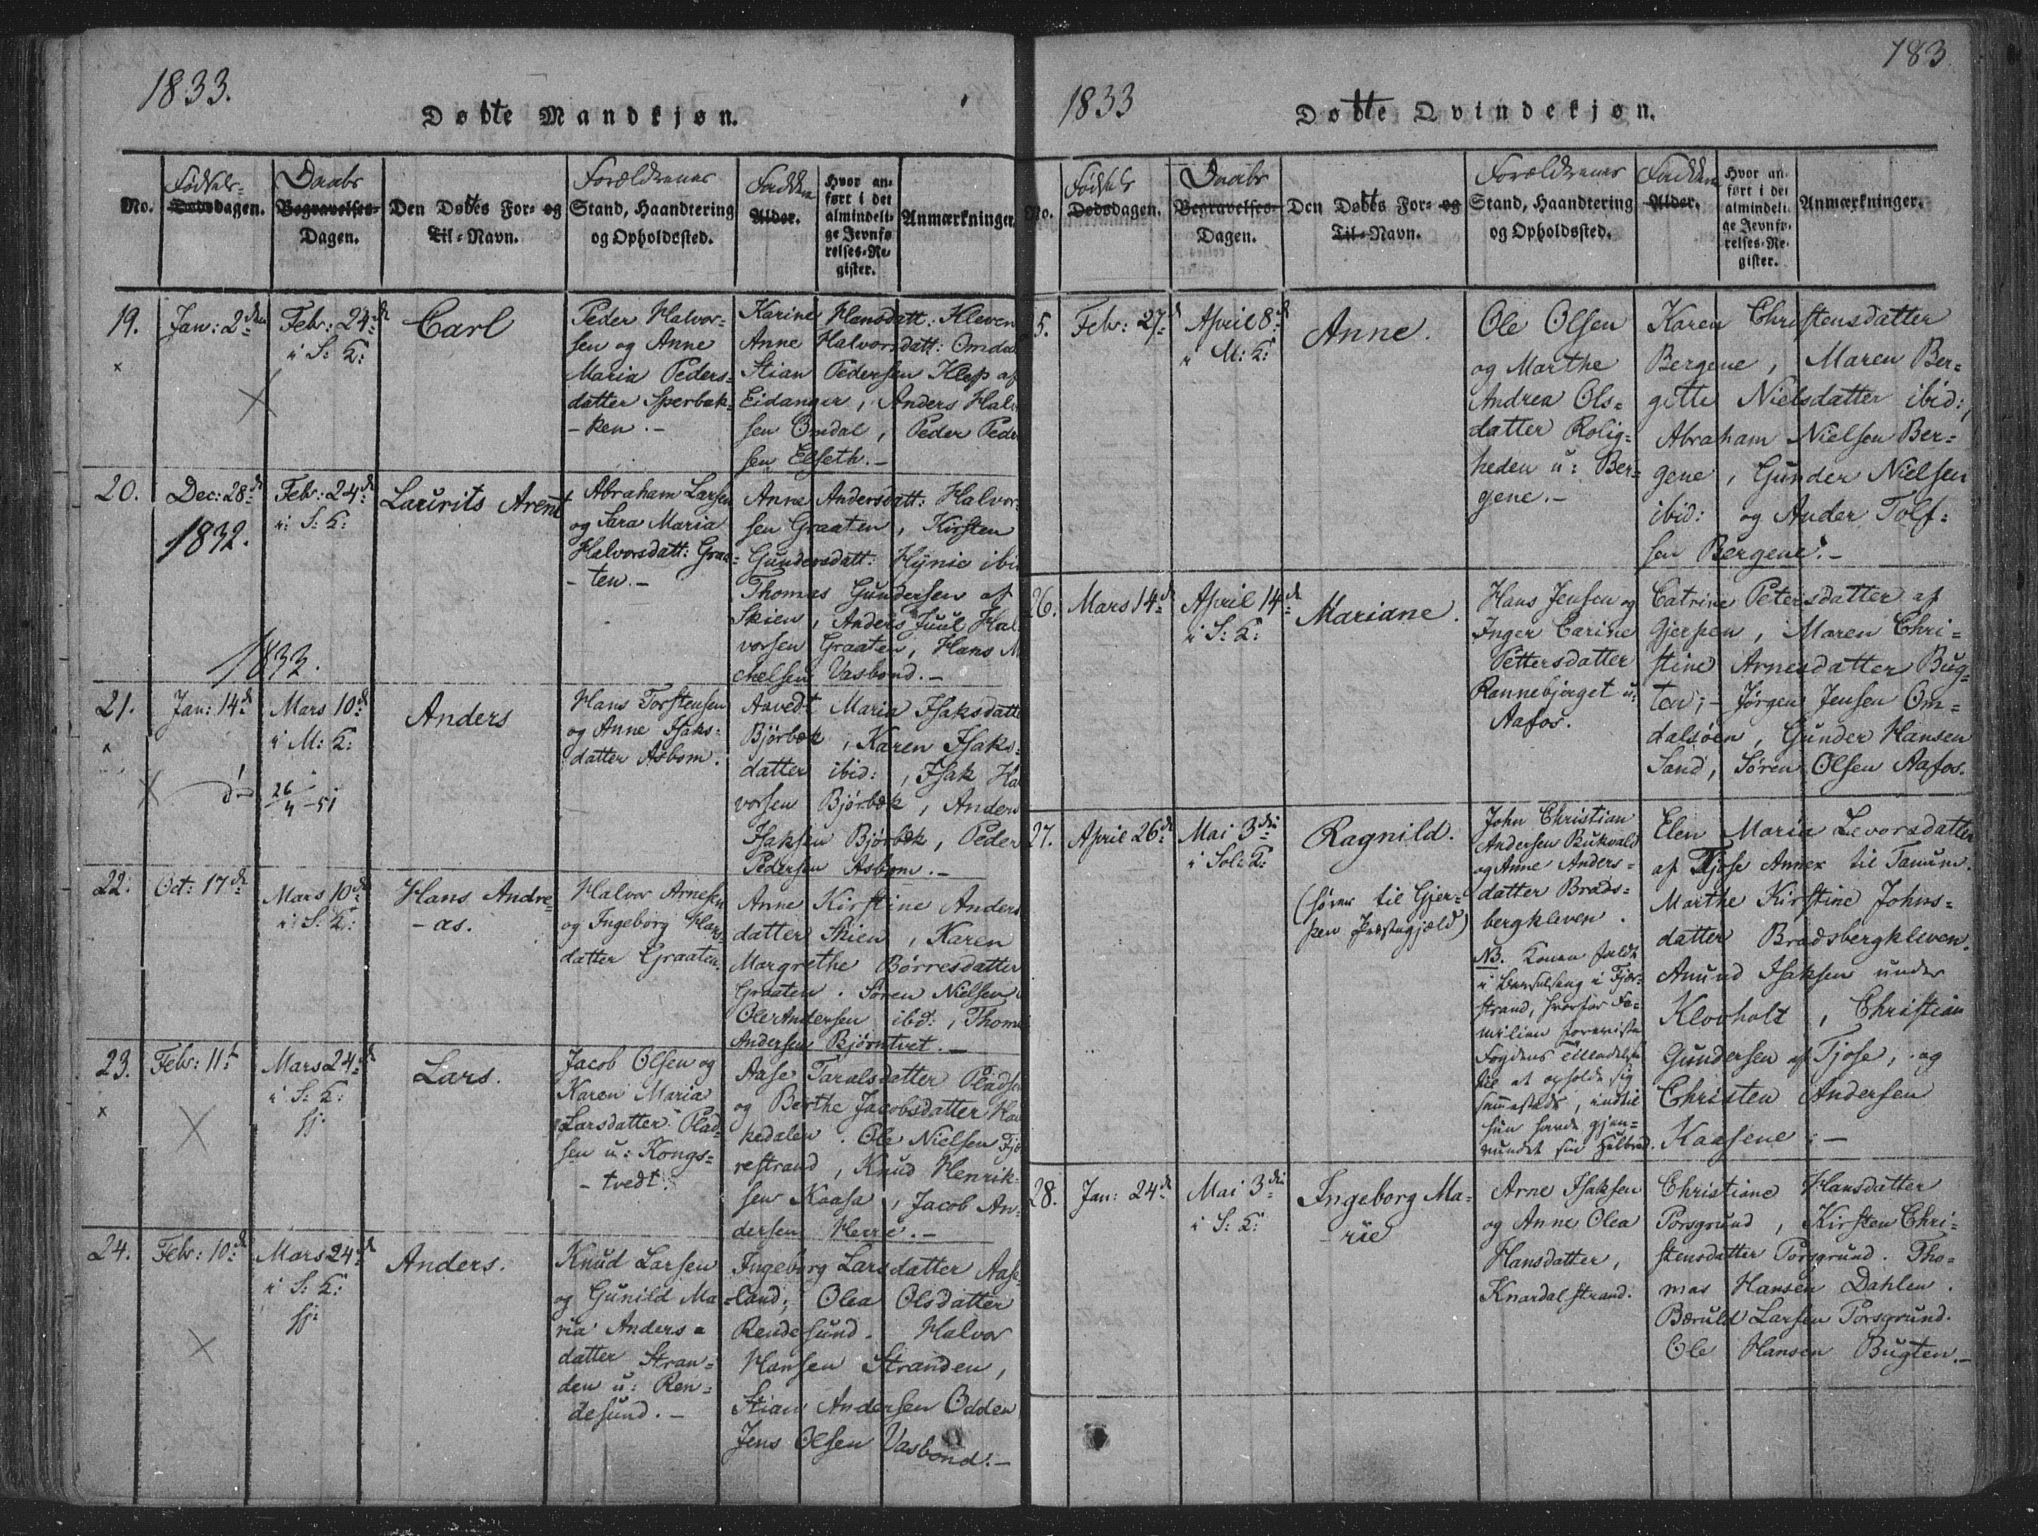 1833.
Døbte Mandkjøn.
No.
Fødsels-
Dødsdagen.
Daabs
Begravelses-
Dagen.
Den Døbtes For- og
Til-Navn.
Forældrenes
Stand, Haandtering
og Opholdssted.
Fadderne
Alder.
Hvor an-
ført i det
almindeli-
ge Jevnfø-
relses-Re-
gister.
Anmærkninger.
19.
Jan: 2den
Feb: 24de
i S: K:
Carl
Peder Halvor-
sen og Anne
Maria Peders-
datter Sperbak-
- ken. -
Karine Hansdatt: Kleven
Anne Halvorsdatt: Omdal
Stian Pedersen Klep af
Eidanger, Anders Halv
sen Omdal, Peder Peder
sen Elseth. -
20.
Dec: 28de
1832.
Feb: 24de
i: S: K:
Laurits Arent
Abraham Larsen
og Sara Maria
Halvorsdatt: Graa-
- ten. -
Anne Andersdatt: Halvor-
sen Graaten, Kirsten
Gundersdatt: Hynie ibi
Thomas Gundersen af
Skien, Anders Juul Hal
vorsen Graaten, Hans M
chelsen Vasbond. -
1833.
21.
Jan: 14de
Mars 10de
i M: K:
d:
26/4 - 51
Anders
Hans Torstensen
og Anne Isaks-
datter Asbom.
Aavedt Maria Isaksdatte
Bjørbæk, Karen Isaks-
datter ibid:, Isak Ha
vorsen Bjørbæk, Anders
Isaksen Bjørbæk, Peder
Pedersen Asbom. -
22.
Oct: 17de
Mars 10de
i S: K:
Hans Andre-
- as.
Halvor Arnesen
og Ingeborg Hans-
datter Graaten.
Anne Kirstine Anders
datter Skien, Karen
Margrethe Børresdatter
Graaten. Søren Nielsen
Ole Andersen ibid:, Thom
Andersen Bjørntvet. -
23.
Feb: 11te
Mars 24de
i S: K:
hj:
Lars.
Jacob Olsen og
Karen Maria
Larsdatter Plad-
sen u: Kongs-
- tvedt.
Aase Taralsdatter Pladsen
og Berthe Jacobsdatter Ha
kedalen. Ole Nielsen Fjæ
restrand, Knud Henrik-
sen Kaasa, Jacob An-
dersen Herre. -
24.
Feb: 10de
Mars 24de
i S: K:
hj:
Anders.
Knud Larsen
og Gunild Ma-
ria Anders-
datter Stran-
den u: Ren-
desund. -
Ingeborg Larsdatter Aase
land; Olea Olsdatter
Rendesund. Halvor
Hansen Stranden,
Stian Andersen Odden
Jens Olsen Vasbond. -
183.
1833
Døbte Qvindekjøn.
No.
Fødsels
Dødsdagen.
Daabs
Begravelses-
Dagen.
Den Døbtes For- og
Til-Navn.
Forældrenes
Stand, Haandtering
og Opholdssted.
Fadderne
Alder.
Hvor an-
ført i det
almindeli-
ge Jevnfø-
relses-Re-
gister.
Anmærkninger.
5.
Feb: 27de
April 8de
i M: K:
Anne.
Ole Olsen
og Marthe
Andrea Ols-
datter Rolig-
heden u: Ber-
gene. -
Karen Christensdatter
Bergene, Maren Ber-
gitte Nielsdatter ibid:,
Abraham Nielsen Ber-
gene, Gunder Nielsen
ibid: og Ander Tolf-
sen Bergene. -
26.
Mars 14de
April 14de
i S: K:
Mariane.
Hans Jensen og
Inger Carine
Pettersdatter
Rannebjerget u:
Aafos.
Catrine Petersdatter af
Gjerpen, Maren Chri-
stine Arnesdatter Bug-
ten; - Jørgen Jensen Om-
dalsøen, Gunder Hansen
Sand, Søren Olsen Aafos.
27.
April 26de
Mai 3die
i Sol: K:
Ragnild.
(hører til Gjer-
pen Præstegjæld)
John Christian
Andersen Bukvald
og Anne Anders-
datter Brads-
bergkleven.
NB. Konen faldt
i Barselseng i Fjær-
strand, hvorfor Fa-
milien forreviste
Fogdens Tilladelse
til at opholde sig
sammesteds, indtil
hun havde gjen-
vundet sin Helbred.
Elen Maria Levorsdatter
af Tjose Annex til Tanum.
Marthe Kirstine Johns-
datter Bradsbergkleven.
Amund Isaksen under
Klovholt, Christian
Gundersen af Tjose, og
Christen Andersen
Kaasene. -
28.
Jan: 24de
Mai 3die
i S: K:
Ingeborg Ma-
- rie
Arne Isaksen
og Anne Olea
Hansdatter,
Knardalstrand.
Christiane Hansdatter
Porsgrund, Kirsten Chri-
stensdatter Porsgrund. Tho-
mas Hansen Dahlen.
Bæruld Larsen Porsgrund.
Ole Hansen Bugten. -